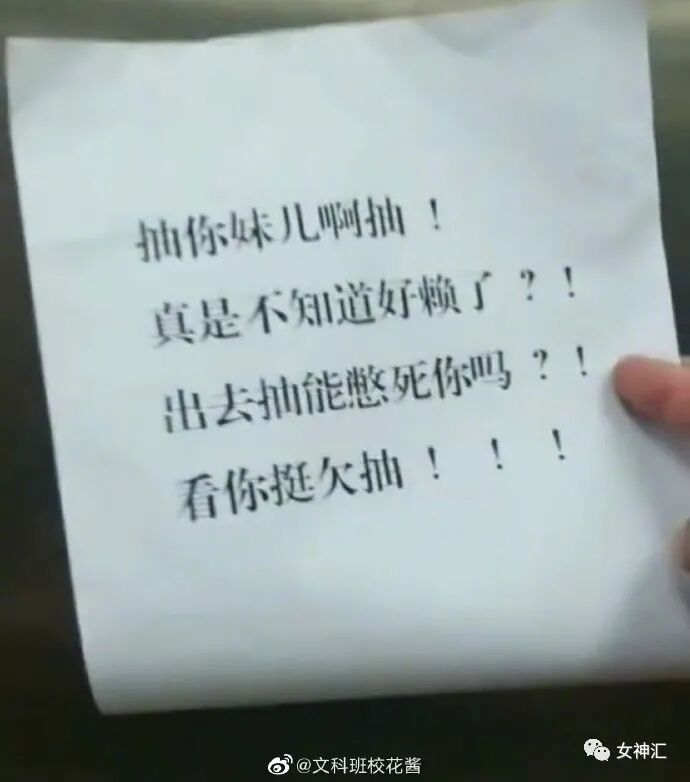 抽你妹儿啊抽！
真是不知道好赖了？！
出去抽能憋死你吗？！
看你挺欠抽！！！
@文科班校花酱
女神汇